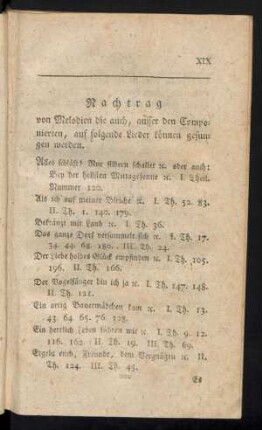 XIX
Nachtrag
von Melodien die auch, ausser den Compo-
nierten, auf folgende Lieder können gesun-
gen werden.
Alles schläft! Nur silbern schallet ꝛc. oder auch:
Bey der hellsten Mittagssonne ꝛc. I Theil.
Nummer 120.
Als ich auf meiner Bleiche ꝛc. I. Th. 52. 83.
II. Th. 1. 140. 179.
Bekränzt mit Laub ꝛc. I. Th. 36.
Das ganze Dorf versammelt sich ꝛc. I. Th. 17.
34. 44. 68. 180. III. Th. 24.
Der Liebe holdes Glück empfinden ꝛc. I. Th. 105.
196. II. Th. 166.
Der Vogelfänger bin ich ja ꝛc. I. Th. 147. 148.
II. Th. 121.
Ein artig Bauermädchen kam ꝛc. I. Th. 13.
43. 64. 65. 76. 128.
Ein herrlich Leben führen wir ꝛc. I. Th. 9. 12.
116. 162. II. Th. 19. III. Th. 69.
Ergebt euch, Freunde, dem Vergnügen ꝛc. II.
Th. 124. III. Th. 45.
Es